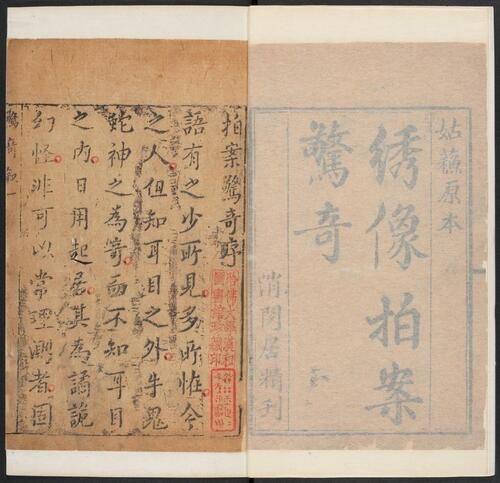 姑蘇原本
綉像拍案
驚奇
消閒居精刊
拍案驚奇序
語有之少所見多所怪今
之人但知耳目之外牛鬼
蛇神之為奇而不知耳目
之內日用起居其為譎詭
幻怪非可以常理測者固
驚奇 敘 一
哈佛大學漢和
圖書館珍藏印